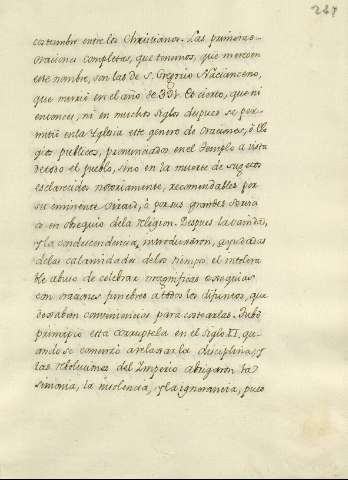 237
costumbre entre los Christianos. Las primeras
oraciones completas, que tenemos, que merecen
este nombre, son las de S. Gregorio Nacianceno,
que murió en el año de 391. Es cierto, que ni
entonces, ni en muchos siglos despues se per-
mitió en la Yglesia este genero de oraciones, ò Elo
gios publicos, pronunciados en el Templo a vista
de todo el pueblo, sino en la muerte de sugetos
esclarecidos notoriamente, recomendables por
su eminente virtud, ò por sus grandes servici
os en obsequio de la Religion. Despues la vanidad,
y la condescendencia introduxeron, ayudadas
de las calamidades de los tiempos el intolera
ble abuso de celebrar magnificas exequias
con oraciones funebres a todos los difuntos, que
dexaban conveniencias para costearlas. Tubo
principio esta corruptela en el Siglo XI, qu-
ando se comenzó a relaxar la disciplina, y
las reboluciones del Imperio abrigaron la
simonia, la insolencia, y la ignorancia, pues